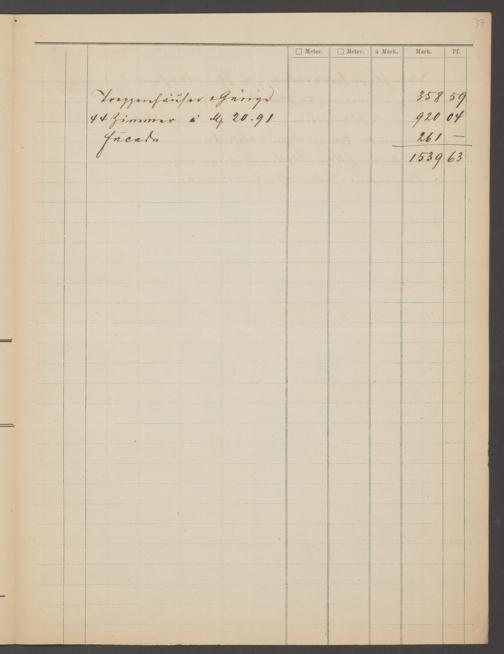 37
□ Meter. □ Meter. à Mark. Mark. Pf.
Treppenhäuser & Gänge 358 59
44 Zimmer à M 20.91 920 04
Facade 261 —
1539 63